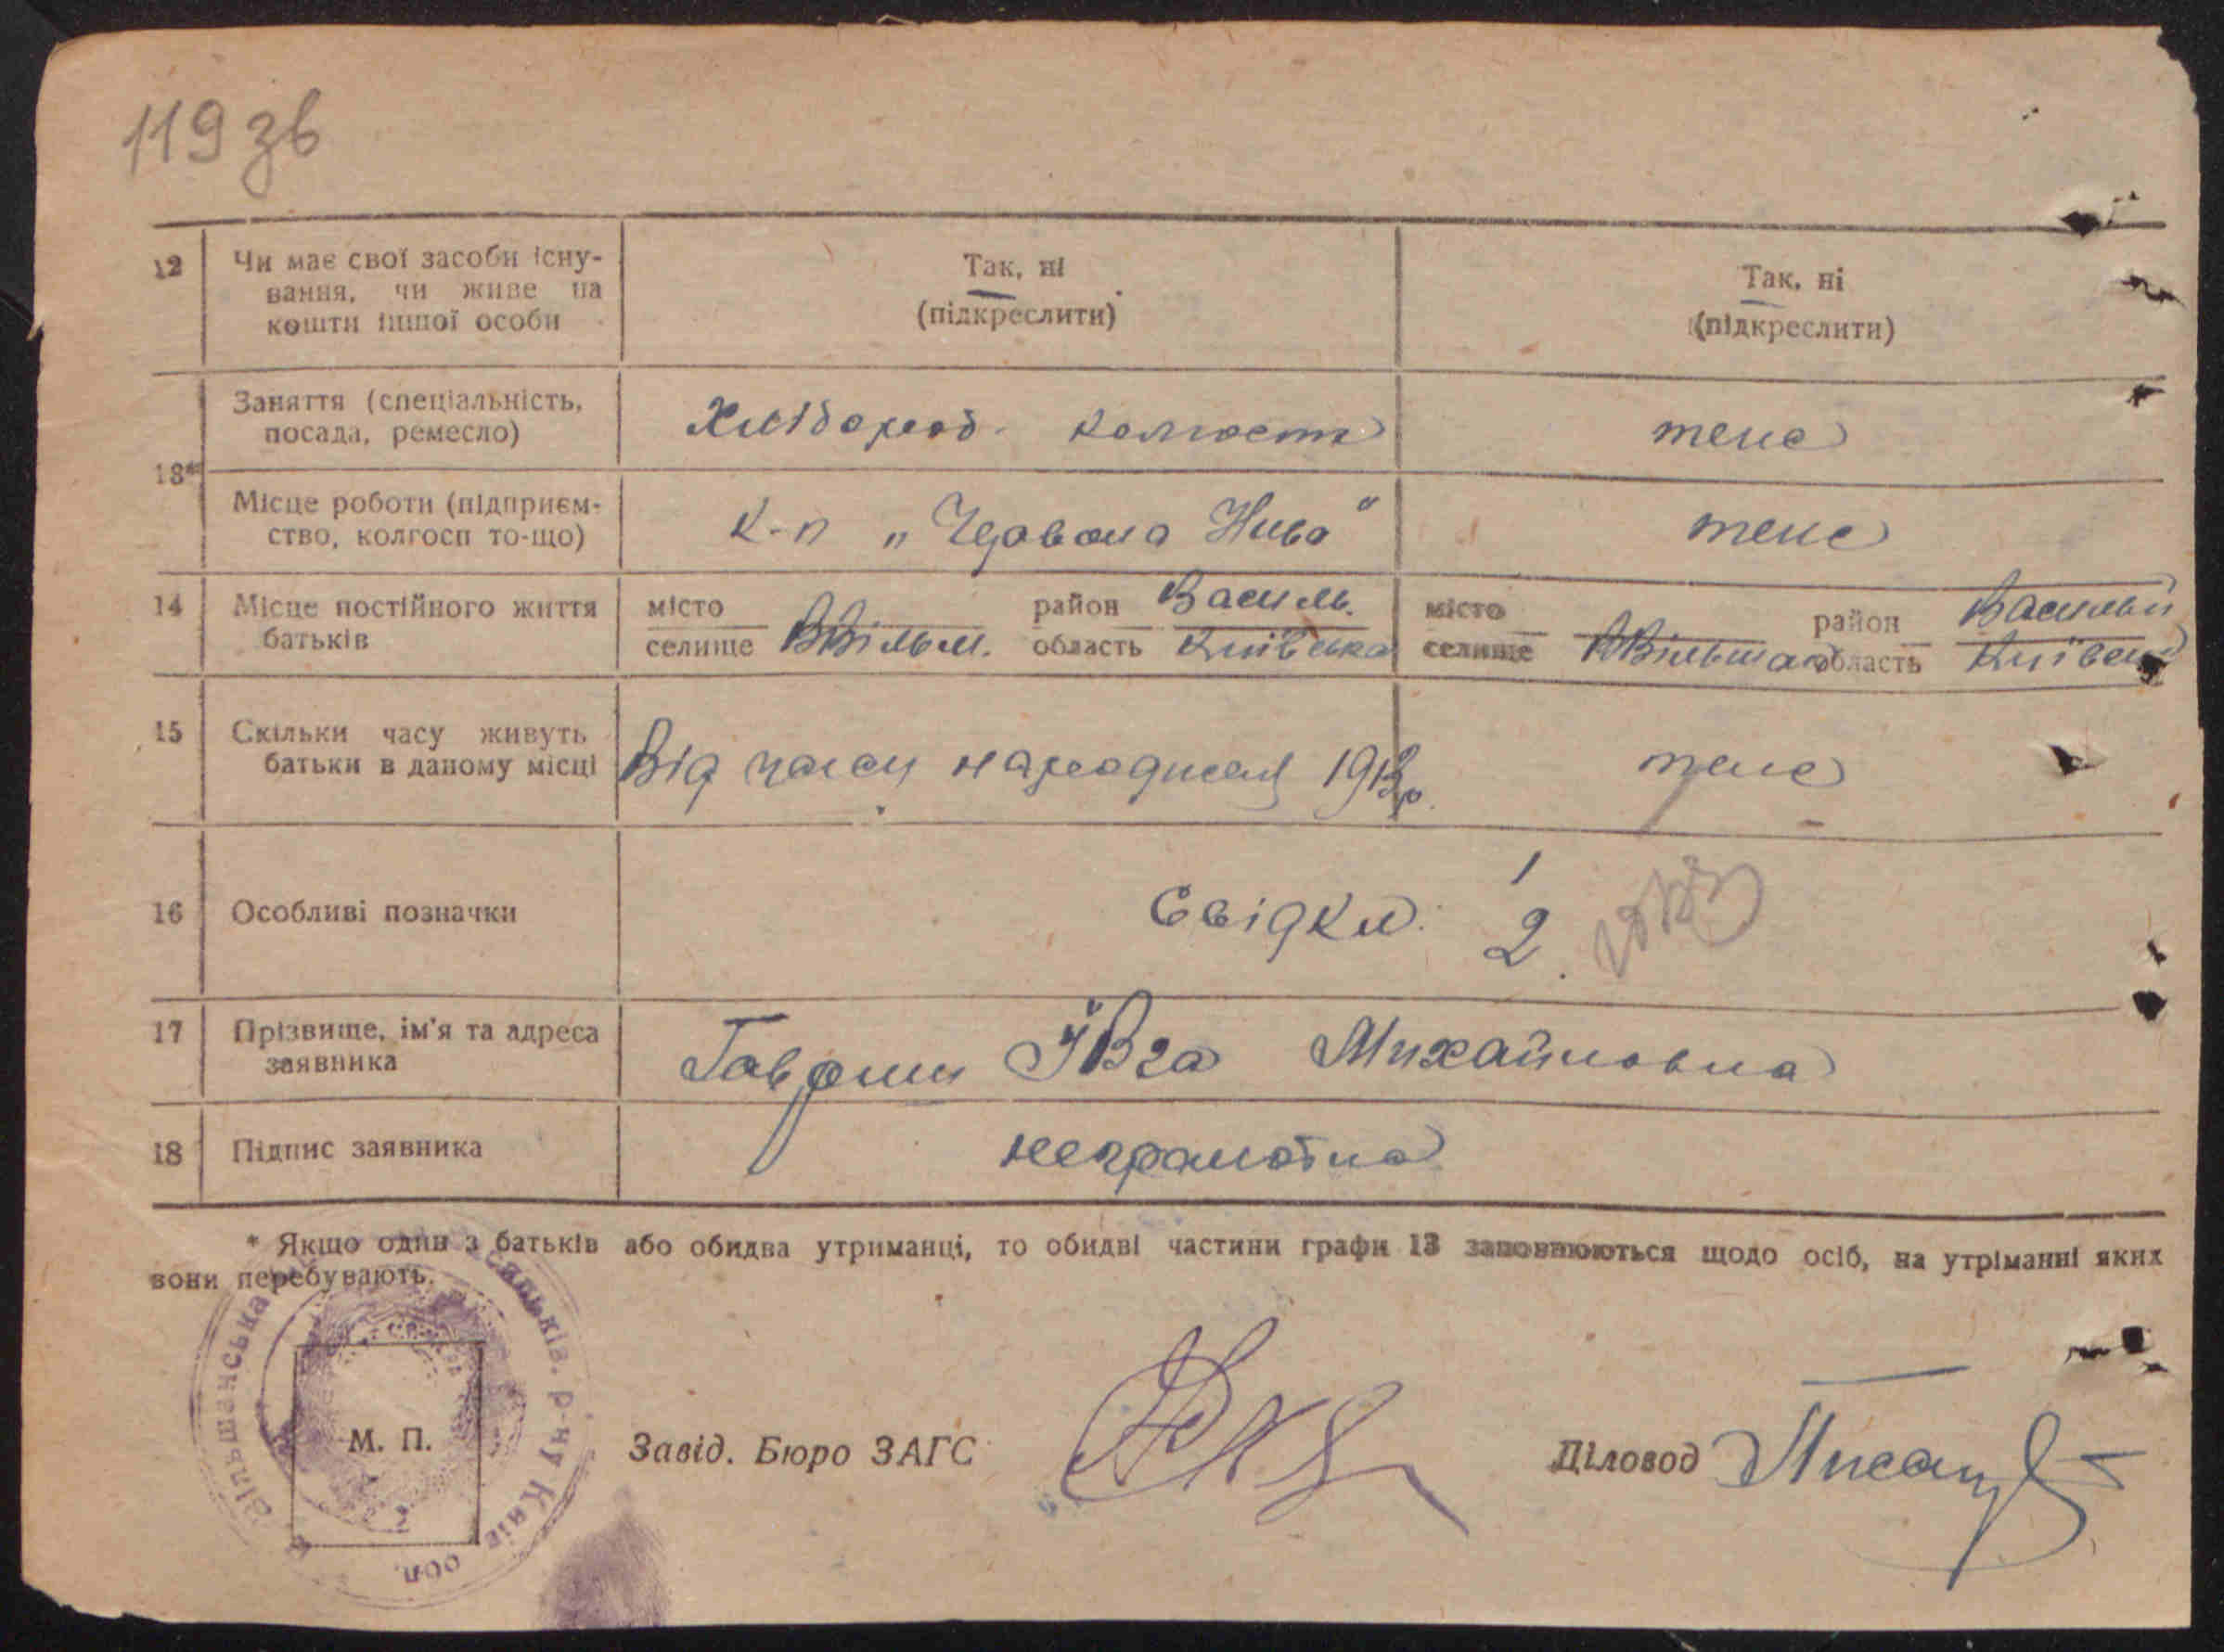 119 зв
12 Чи має свої засоби існу-
вання, чи живе на
кошти іншої особи
Так, ні
(підкреслити)
Так, ні
(підкреслити)
13*
Заняття (спеціальність,
посада, ремесло)
Хлібороб. колгосп
теж
Місце роботи (підприєм-
ство, колгосп то-що)
К-п „Червона Нива"
теж
14 Місце постійного життя
батьків
місто
селище ВВільш.
район Василь.
область Київська
місто
селище ВВільшан
район Васильк
область Київськ
15 Скільки часу живуть
батьки в даному місці
Від часу народження 1913р.
теж
16 Особливі позначки
Свідки: 1
2.
17 Прізвище, ім'я та адреса
заявника
Гавриш Ївга Михайловна
18 Підпис заявника
неграмотна
* Якщо один з батьків або обидва утриманці, то обидві частини графи 13 заповнюються щодо осіб, на утріманні яких
вони перебувають.
Вільшанська Васильків. р-ну Київ обл.
М. П.
Завід. Бюро ЗАГС
Діловод